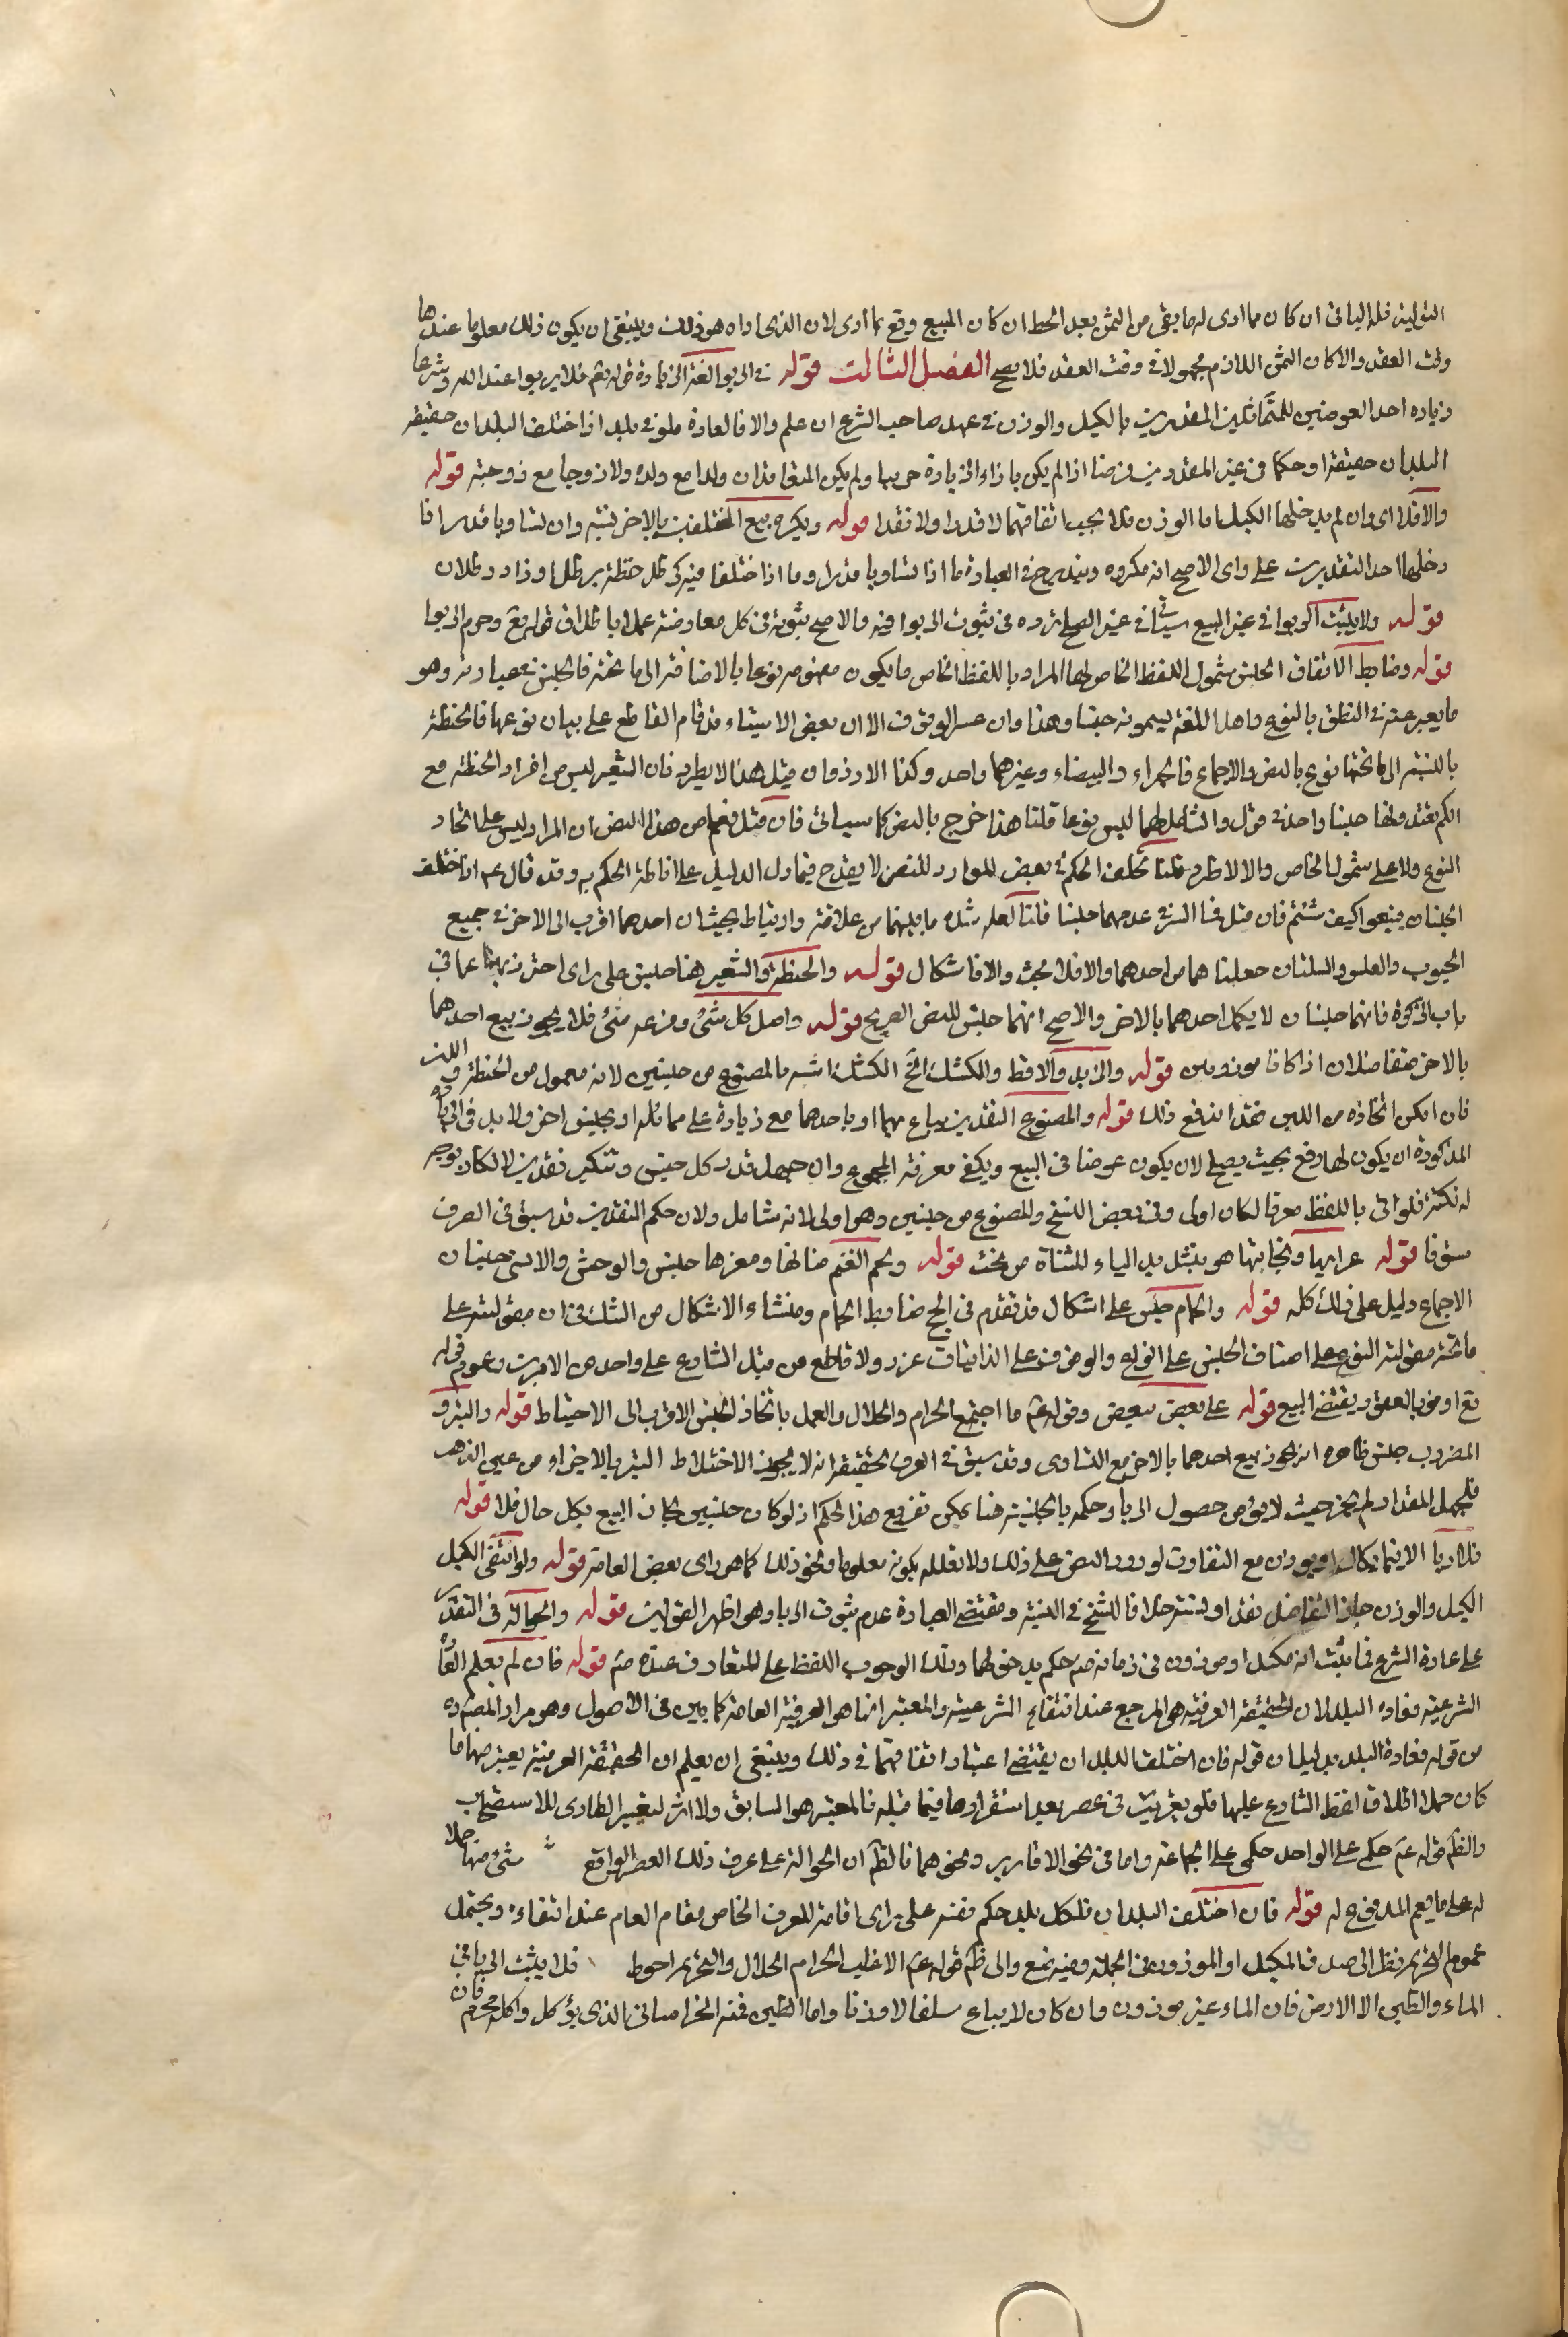 التولية فله الباقي ان كان مما ادى له ما بقي من الثمن بعد الحط ان كان المبيع وقع بما ادى لان الذي اداه هو ذلك وينبغي ان يكون ذلك معلوما عندها
وقت العقد والا كان الثمن اللازم مجهولا في وقت العقد فلا يصح الفصل الثالث قوله في الربوا لغة الزيادة قوله تعالى فلا يربوا عند الله وشرعا
زيادة احد العوضين المتماثلين المقدرين بالكيل والوزن في عهد صاحب الشرع ان علم والا فالعادة فلو في بلد اذا اختلف البلدان حقيقة
البلدان حقيقة او حكما في غير المقدرين قرضا اذا لم يكن باذاء الزيادة حربيا ولم يكن المتعاقدان والدا مع ولده ولا زوجا مع زوجته قوله
والا فلا اي وان لم يدخلها الكيل اما الوزن فلا يجب اتفاقهما لا قدرا ولا نقدا قوله ويكره بيع المختلفين بالاخر نسيئة وان تساويا قدرا اذا
دخلها احد التقديرين على راي الاصح انه مكروه ويندرج في العبارة ما اذا تساويا قدرا وما اذا اختلفا فيه كرطل حنطة برطل ارز او رطلان
قوله ولا يثبت الربوا في غير البيع سيأتي في غير الصلح تردده في ثبوت الربوا فيه والاصح ثبوته في كل معاوضة عملا باطلاق قوله تعالى وحرم الربوا
قوله وضابط الاتفاق الجنس شمول اللفظ الخاص لهما المراد باللفظ الخاص ما يكون مفهومه نوعا بالاضافة الى ما تحته فالجنس في عبارته وهو
ما يعبر عنه في المنطق بالنوع واهل اللغة يسمونه جنسا وهذا وان عسر الوقوف الا ان بعض الاشياء قد قام القاطع على بيان نوعها فالحنطة
بالنسبة الى ما تحتها نوع بالنص والاجماع فالحمراء والبيضاء وغيرهما واحد وكذا الارز فان قيل هذا لا يطرد فان الشعير ليس من افراد الحنطة مع
انكم تعتدونها جنسا واحدا في قول والشامل لهما ليس نوعا قلنا هذا خرج بالنص كما سيأتي فان قيل فعلم من هذا النص ان المراد ليس على اتحاد
النوع ولا على شمول الخاص والا لاطرد قلنا تخلف الحكم في بعض الموارد للنص لا يقدح فيما دل الدليل على اناطة الحكم به وقد قال ع اذا اختلف
الجنسان فبيعوا كيف شئتم فان قيل فما السر في عدهما جنسا قلنا لعله شدة ما بينهما من علاقة وارتباط بحيث ان احدهما اقرب الى الاخر في جميع
الحبوب والعلس والسلتان جعلنا هما من احدهما والا فلا بحث والا فاشكال قوله والحنطة والشعير هنا جنس على راي احترز بهنا عما في
باب الزكوة فانهما جنسان لا يكمل احدهما بالاخر والاصح انهما جنس للنص الصريح قوله واصل كل شيء وفرعه شيء فلا يجوز بيع احدهما
بالاخر متفاضلان اذا كانا موزونين قوله والزبد والاقط والكشك الخ الكشك اشبه بالمصنوع من جنسين لانه معمول من الحنطة واللبن
فان امكن اتخاذه من اللبن فقد اندفع ذلك قوله والمصنوع النقدين يباع بهما او باحدهما مع زيادة على مماثله او بجنس اخر ولا بد في الزيادة
المذكورة ان يكون لها وقع بحيث يصلح لان يكون عوضا في البيع ويكفي معرفة المجموع وان جهل قدر كل جنس وتنكير نقدين لا تكاد توجد
له نكتة فلو اتى باللفظ معرفا لكان اولى وفي بعض النسخ والمصنوع من جنسين وهو اولى لانه شامل ولان حكم النقدين قد سبق في الصرف
مستوفا قوله عرابها وبخاتيها هو بتشديد الياء المثناة من تحت قوله ولحم الغنم ضأنها ومعزها جنس والوحشي والانسي جنسان
الاجماع دليل على ذلك كله قوله والحمام جنس على اشكال قد تقدم في الحج ضابط الحمام ومنشاء الاشكال من الشك في ان مقوليته على
ما تحته مقولية النوع على اصناف الجنس على انواعه والوقوف على الذاتيات عزيز ولا قاطع من قبل الشارع على واحد من الامرين وعموم قوله
تع اوفوا بالعقود يقتضي البيع قوله على بعض ببعض وقوله ع ما اجتمع الحرام والحلال والعمل باتحاد الجنس الاقرب الى الاحتياط قوله والتبر و
المضروب جنس ظاهره انه يجوز بيع احدهما بالاخر مع التساوي وقد سبق في الصرف تحقيقه انه لا يجوز الاختلاط التبر بالاجزاء من غير الذهب
فيجهل المقدار لم يجز حيث لا يؤمن حصول الربا وحكمه بالجنسية هنا يمكن تفريع هذا الحكم اذ لو كان جنسين لجاز البيع بكل حال فلا قوله
فلا ربا الا فيما يكال او يوزن مع التفاوت لورود النص على ذلك ولا تعلله بكونه معلوما ونحو ذلك كما هو راي بعض العامة قوله ولو انتفى الكيل
الكيل والوزن جاز التفاضل نقدا وفي نسية خلافا للشيخ في النسية ومقتضى العبارة عدم ثبوت الربا وهو اظهر القولين قوله والحوالة في التقدير
على عادة الشرع فما ثبت انه مكيل او موزون في زمانه ص حكم بدخولهما وذلك الوجوب اللفظ على المتعارف عنده ص قوله فان لم يعلم العادة
الشرعية فعادة البلد لان الحقيقة العرفية هي المرجع عند انتفاء الشرعية والمعتبر انما هو العرفية العامة كما بين في الاصول وهو مراد المصنف ره
من قوله فعادة البلد بدليل ان قوله فان اختلف البلدان يقتضي اعتبار اتفاقهما في ذلك وينبغي ان يعلم ان الحقيقة العرفية يعتبر منها ما
كان حملا اطلاق لفظ الشارع عليها فلو تغيرت في عصر بعد استقرارها فيما قبله فالمعتبر هو السابق ولا اثر لتغيير الطاري للاستصحاب
والظم قوله ع حكمي على الواحد حكمي على الجماعة واما في نحو الاقارير ونحوهما فالظم ان الحوالة على عرف ذلك العصر الواقع شيء منها حملا
له على ما يعم المدفوع له قوله فان اختلف البلدان فلكل بلد حكم نفسه على راي اقامة للعرف الخاص مقام العام عند انتفاءه ويحتمل
عموم التحريم نظرا الى صدق المكيل او الموزون في الجملة وفيه منع والى ظم قوله ع الا غلب الحرام الحلال والتحريم احوط فلا يثبت الربا في
الماء والطين الا الارمني فان الماء غير موزون وان كان لا يباع سلفا الا وزنا واما الطين فمنه الخراساني الذي يؤكل واكله محرم فان